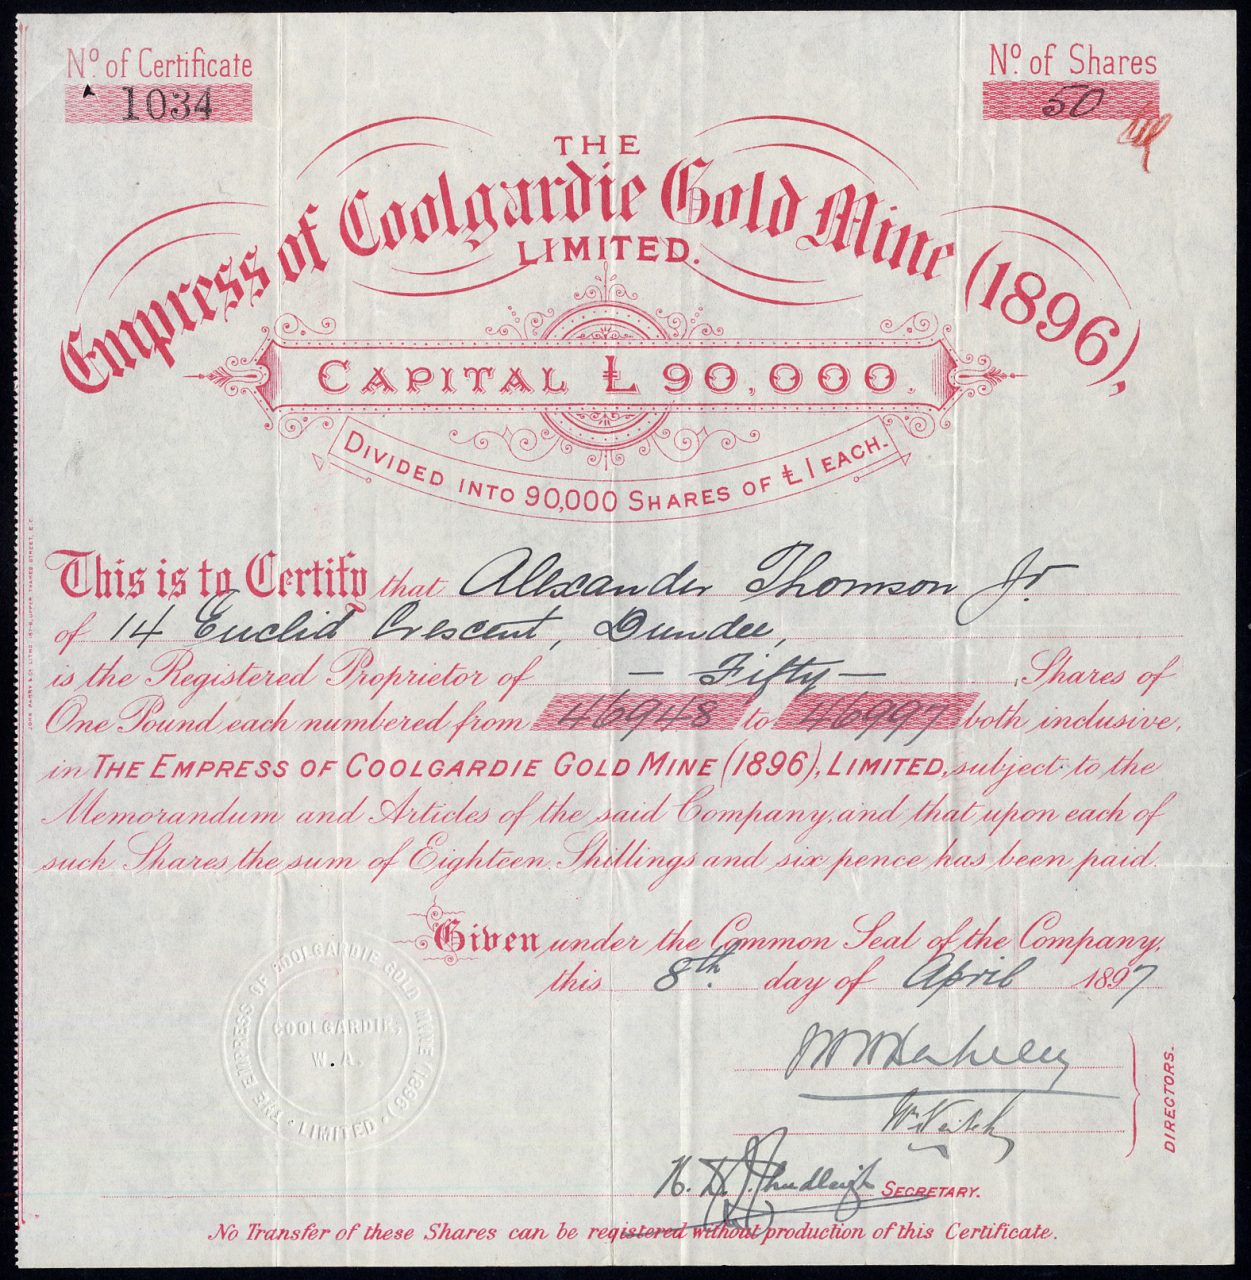 Nº of Certificate
1034
Nº of Shares
50
THE
Empress of Coolgardie Gold Mine (1896),
LIMITED.
CAPITAL £90,000.
DIVIDED INTO 90,000 SHARES OF £1 EACH.
This is to Certify that Alexander Thomson Jr.
of 14 Euclid Crescent, Dundee,
is the Registered Proprietor of — Fifty — Shares of
One Pound each numbered from 46948 to 46997 both inclusive,
in THE EMPRESS OF COOLGARDIE GOLD MINE (1896), LIMITED, subject to the
Memorandum and Articles of the said Company, and that upon each of
such Shares the sum of Eighteen Shillings and six pence has been paid.
Given under the Common Seal of the Company,
this 8th. day of April 1897
THE EMPRESS OF COOLGARDIE GOLD MINE (1896) LIMITED
COOLGARDIE,
W.A.
DIRECTORS.
SECRETARY.
No Transfer of these Shares can be registered without production of this Certificate.